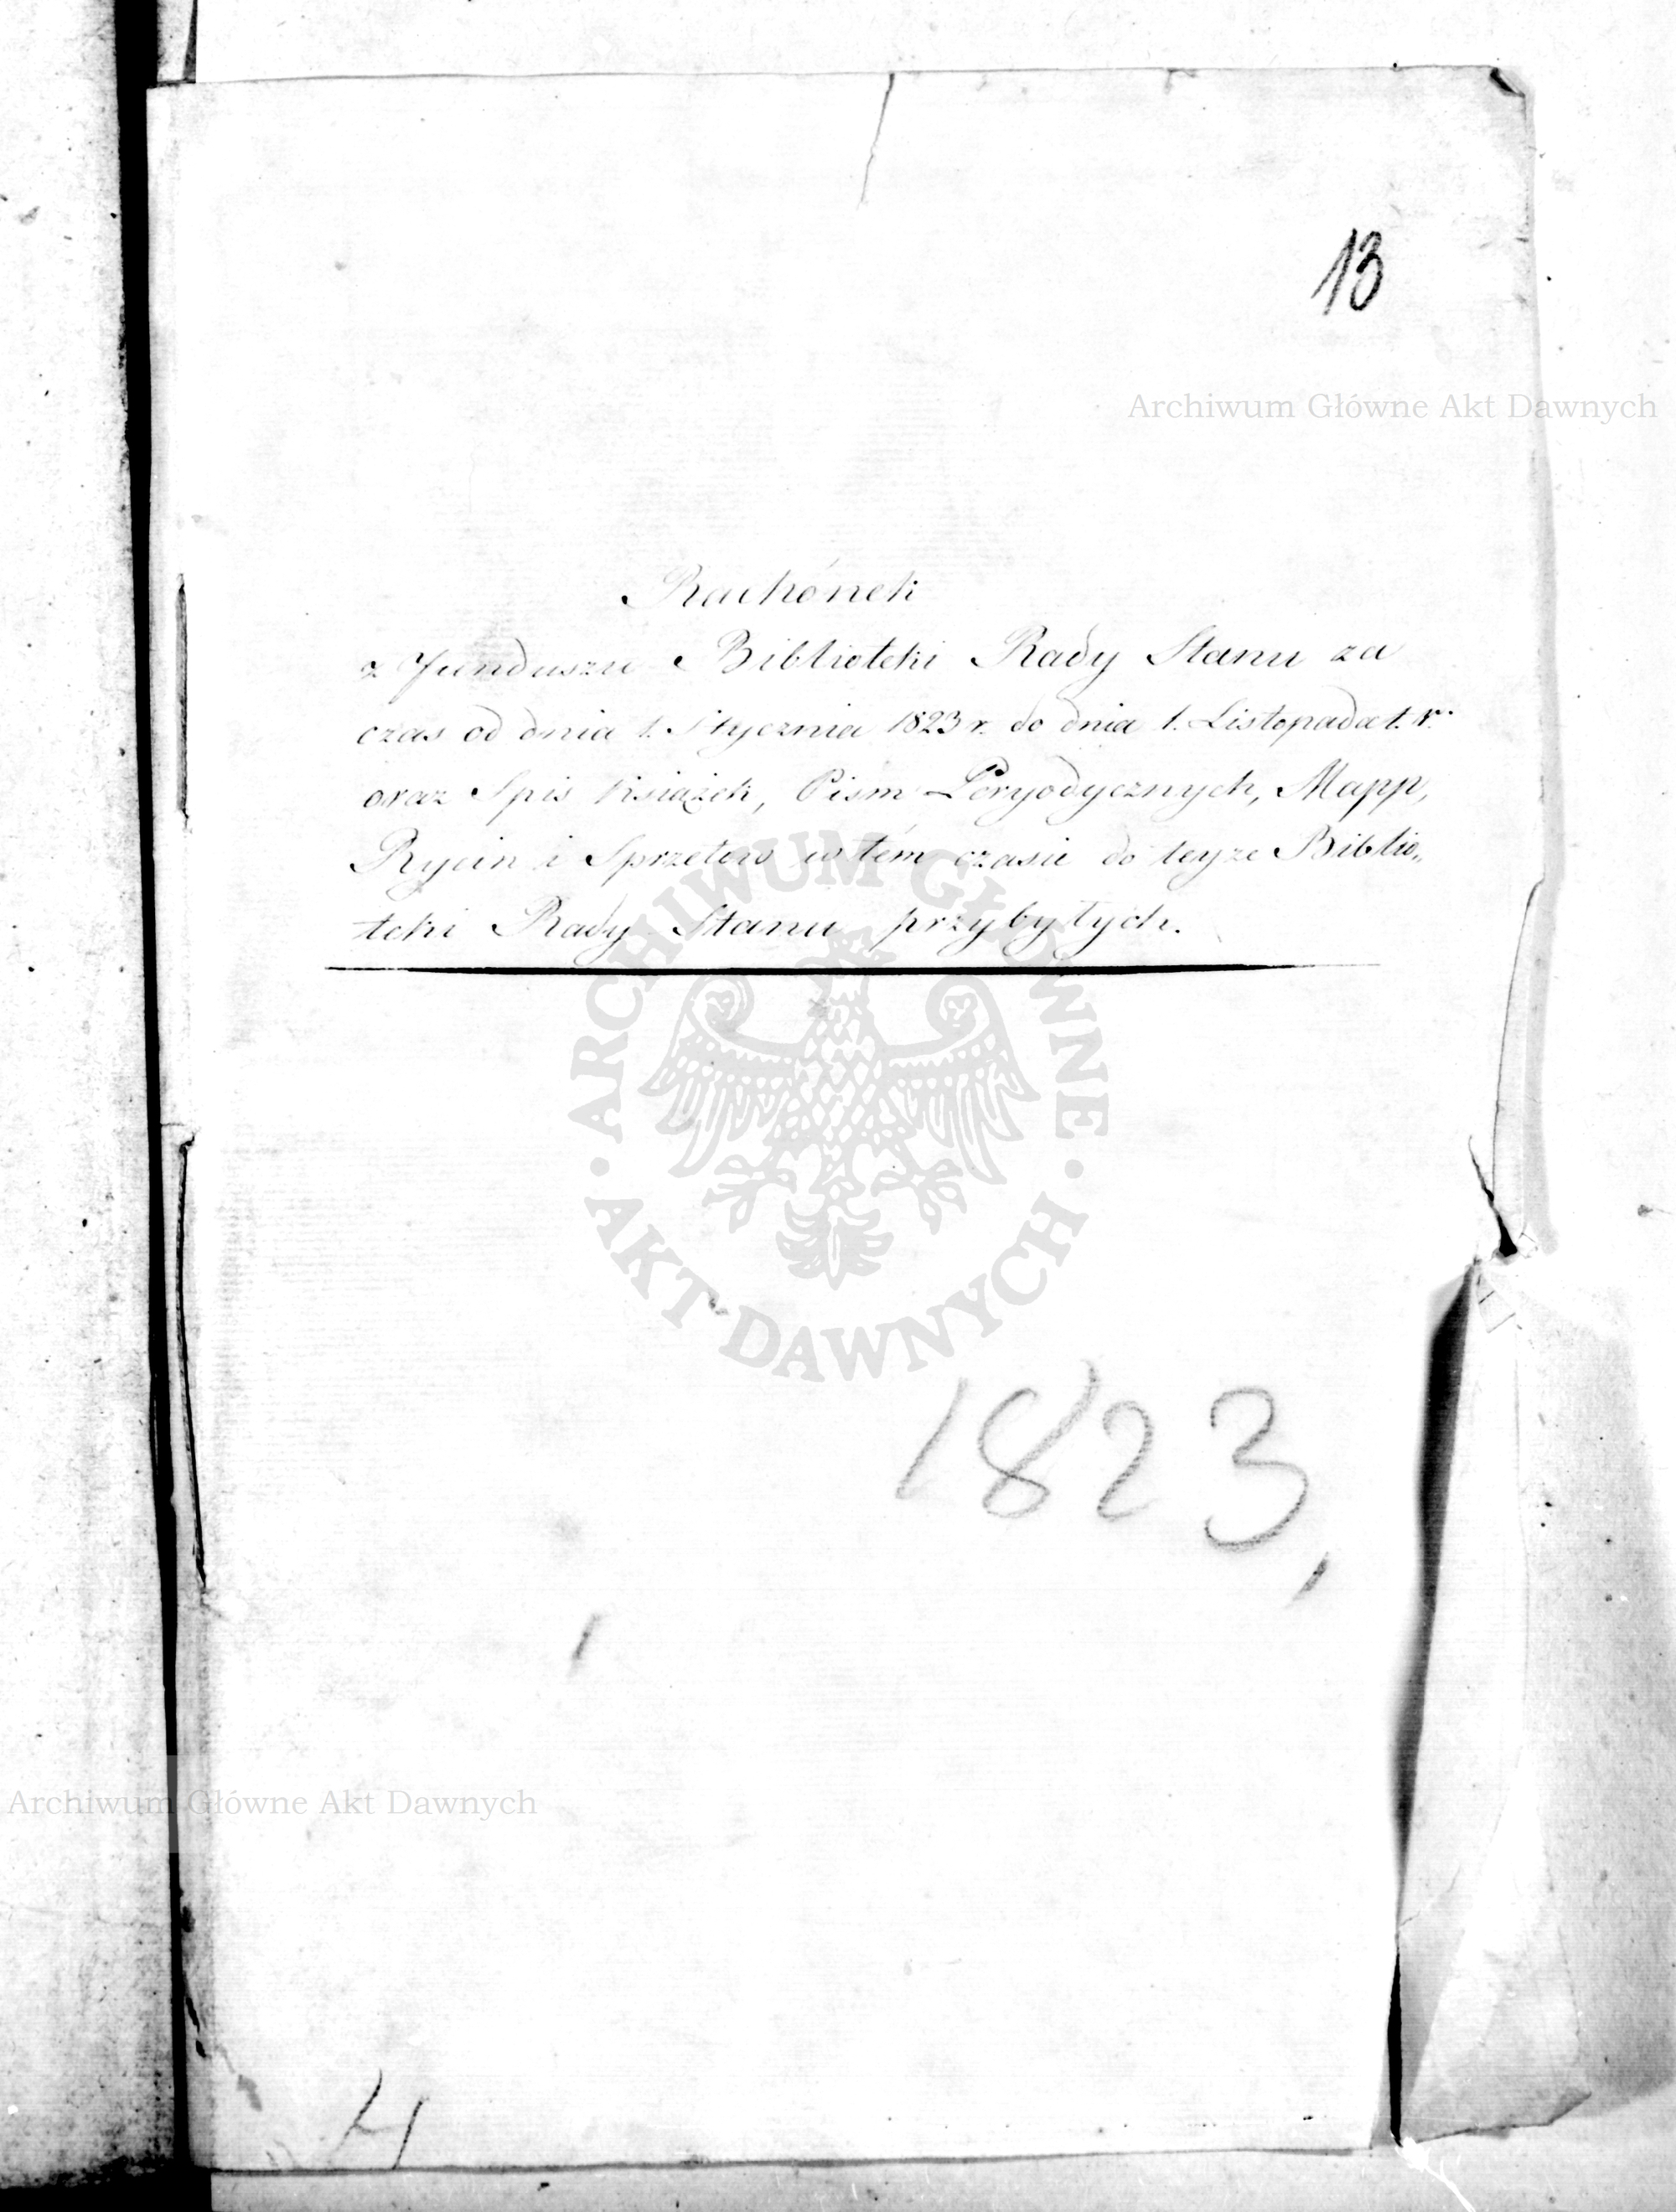 13
Archiwum Główne Akt Dawnych
Rachónek
z Funduszu Biblioteki Rady Stanu za
czas od dnia 1. Stycznia 1823 r. do dnia 1. Listopada t. r.
oraz Spis Książek, Pism Peryodycznych, Mapp,
Rycin i Sprzetów w tém czasie do teyże Biblio„
teki Rady Stanu przybyłych.
ARCHIWUM GŁÓWNE
· AKT DAWNYCH ·
1823,
Archiwum Główne Akt Dawnych
4